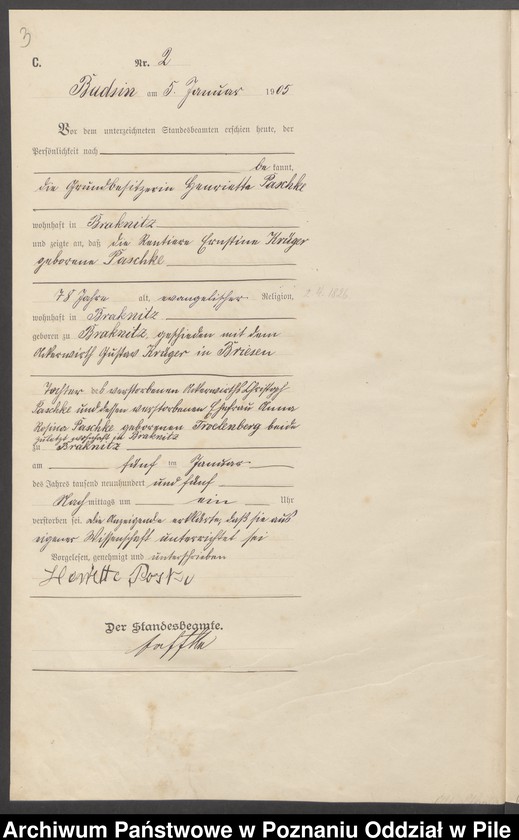 3
C. Nr. 2
Budsin am 5. Januar 1905
Vor dem unterzeichneten Standesbeamten erschien heute, der
Persönlichkeit nach
be kannt,
die Grundbesitzerin Henriette Paschke
wohnhaft in Braknitz
und zeigte an, daß die Rentiere Ernstine Krüger
geborene Paschke
78 Jahre alt, evangelischer Religion,
wohnhaft in Braknitz
geboren zu Braknitz, geschieden mit dem
Ackerwirth Gustav Krüger in Briesen
Tochter des verstorbenen Ackerwirths Christoph
Paschke und dessen verstorbenen Ehefrau Anna
Rosina Paschke geborenen beide
zuletzt wohnhaft zu Braknitz
zu Braknitz
am fünf ten Januar
des Jahres tausend neunhundert und fünf
Nach mittags um ein Uhr
verstorben sei. Die Anzeigende erklärte, daß sie aus
eigener Wissenschaft unterrichtet sei
Vorgelesen, genehmigt und unterschrieben
Der Standesbeamte.
Archiwum Państwowe w Poznaniu Oddział w Pile